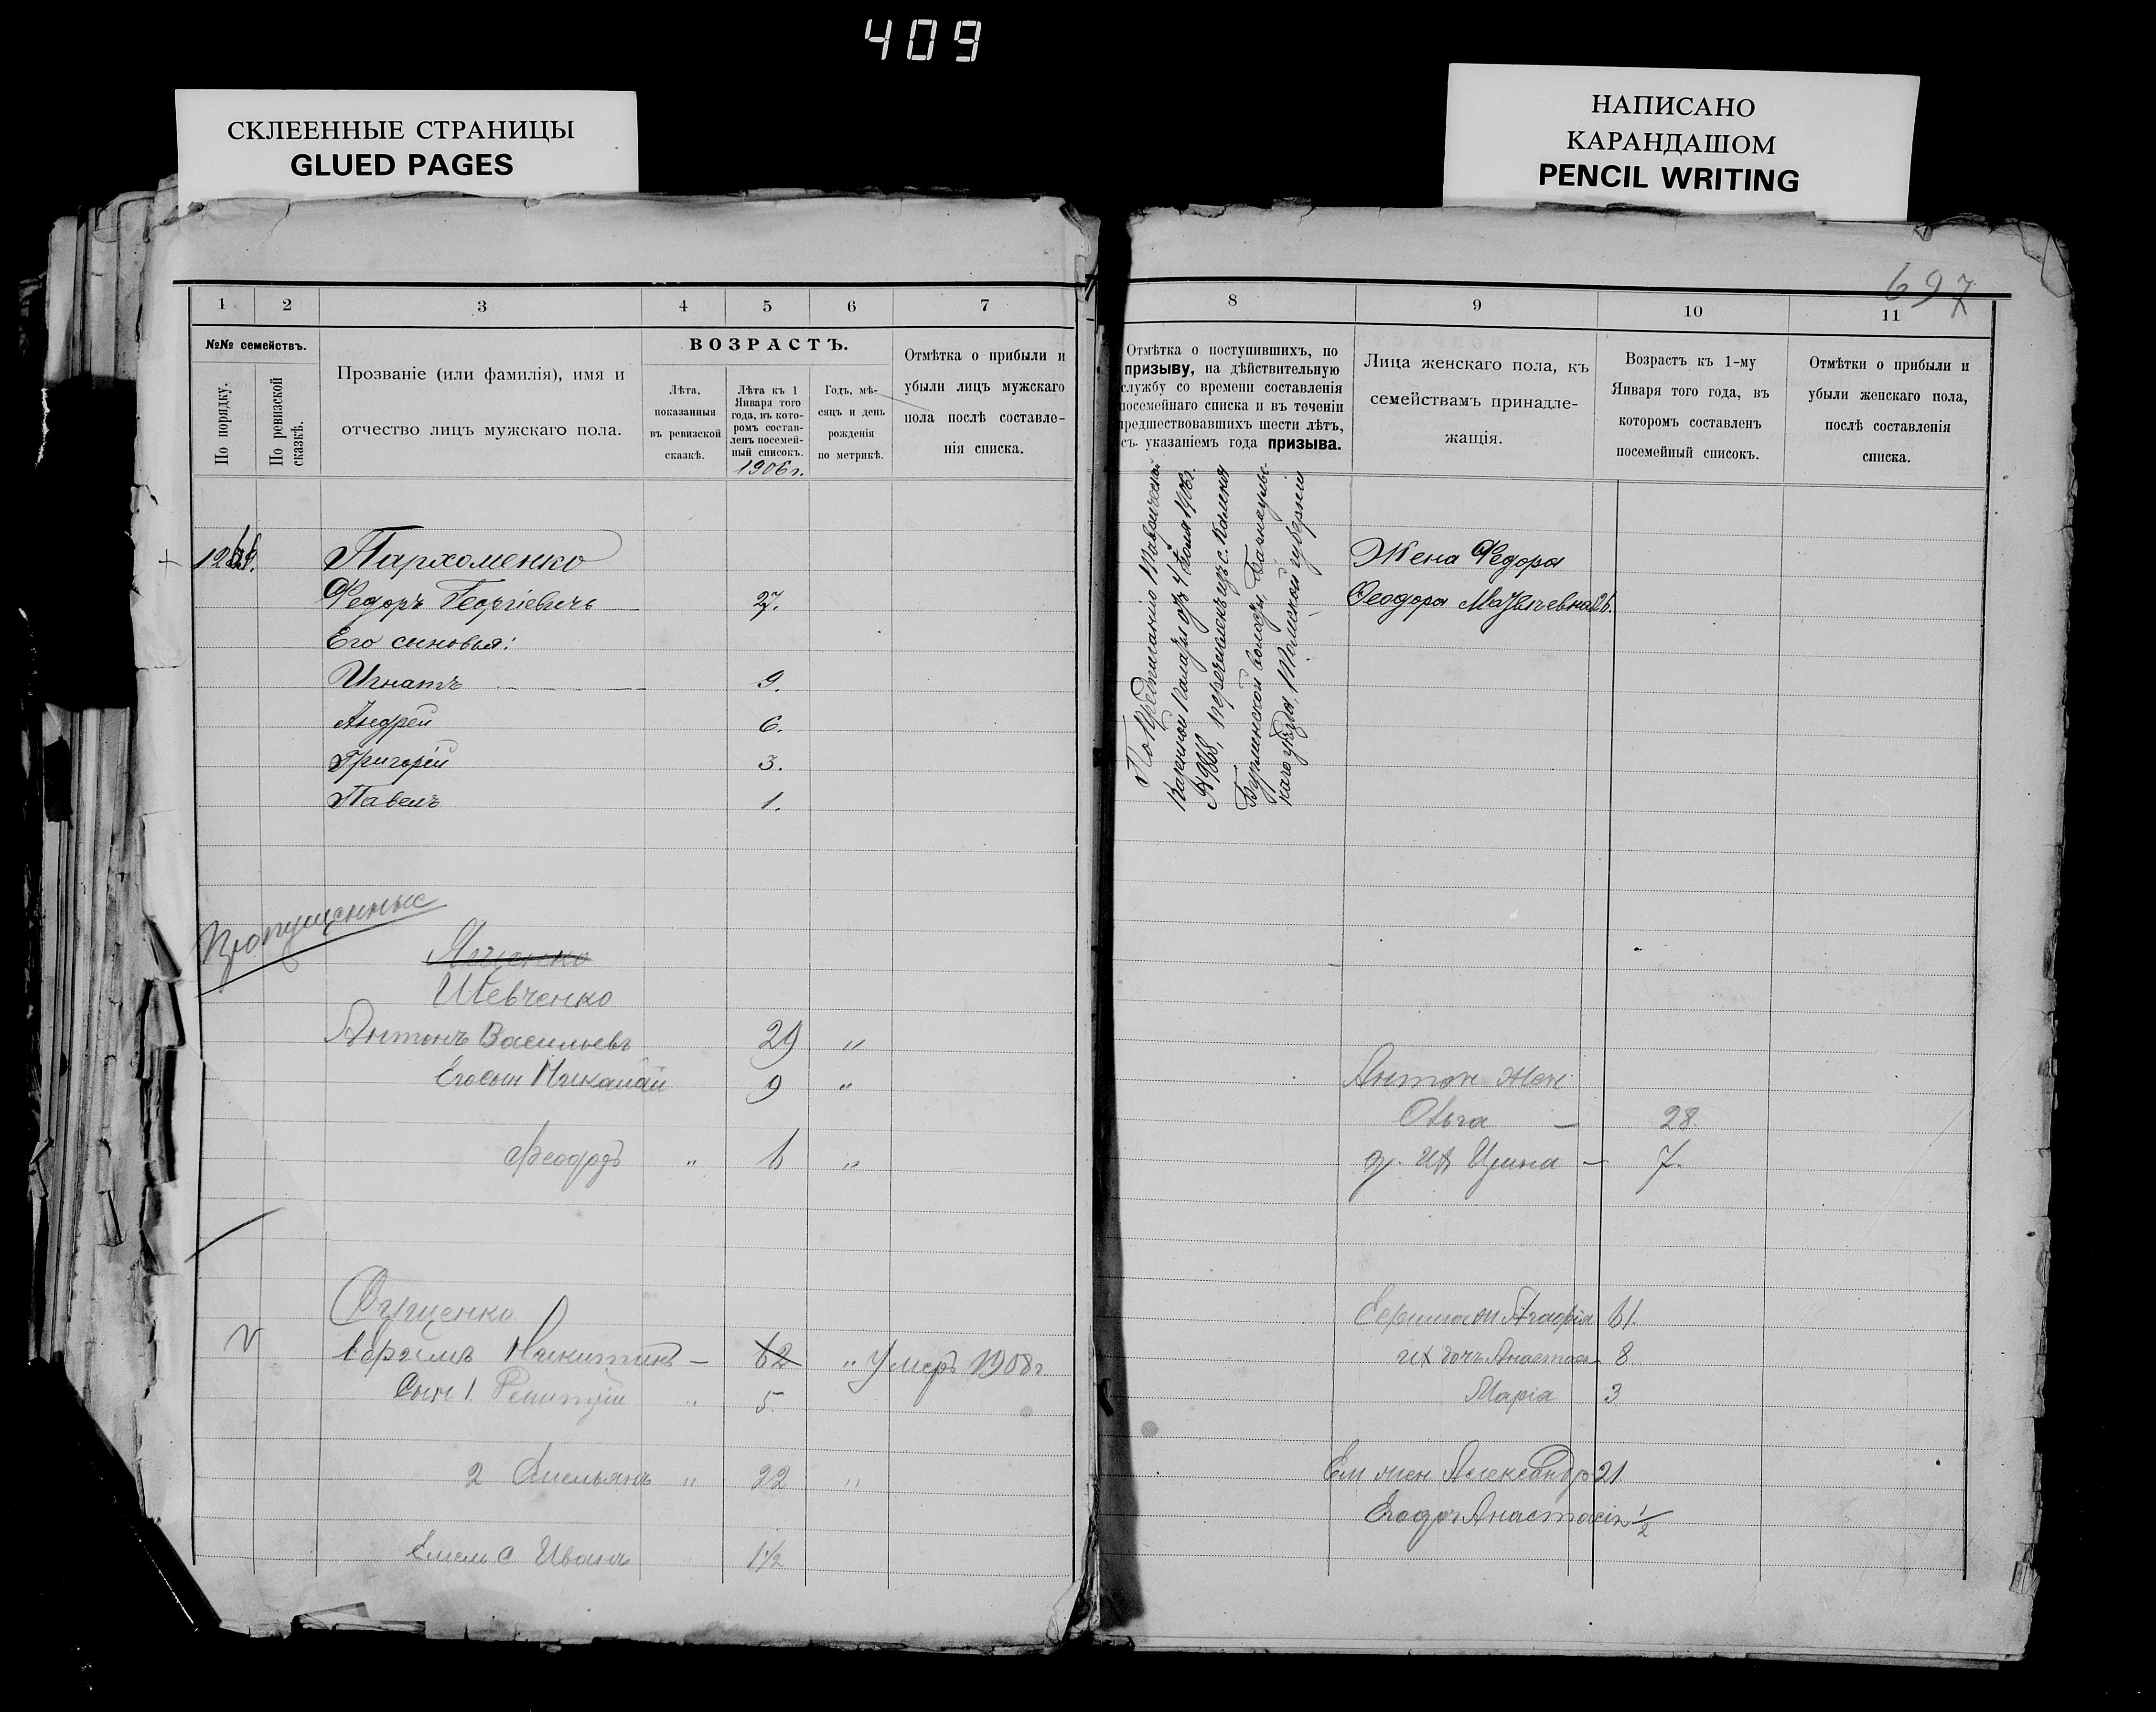 409
СКЛЕЕННЫЕ СТРАНИЦЫ
GLUED PAGES
НАПИСАНО
КАРАНДАШОМ
PENCIL WRITING
697
1 2 3 4 5 6 7
№№ семействъ.
По порядку.
По ревизской
сказкѣ.
Прозваніе (или фамилія), имя и
отчество лицъ мужскаго пола.
ВОЗРАСТЪ.
Лѣта,
показанныя
въ ревизской
сказкѣ.
Лѣта къ 1
Января того
года, въ кото-
ромъ состав-
ленъ посемей-
ный списокъ.
1906 г.
Годъ, мѣ-
сяцъ и день
рожденія
по метрикѣ.
Отмѣтка о прибыли и
убыли лицъ мужскаго
пола послѣ составле-
нія списка.
Пархоменко
Федоръ Георгіевичъ 27.
Его сыновья:
Игнатъ 9.
Андрей 6.
Григорій 3.
Павелъ 1.
Пропущенные
Яценко
Шевченко
Антонъ Васильевъ 29 "
Его сын Николай 9 "
Феодоръ " 6 "
Ефимъ Никитинъ — 62 " Умеръ 1908 г
Сын 1. 5.
2 Емельянъ " 22 "
Емель с Иванъ 1 1/2
8 9 10 11
Отмѣтка о поступившихъ, по
призыву, на дѣйствительную
службу со времени составленія
посемейнаго списка и въ теченіи
предшествовавшихъ шести лѣтъ,
съ указаніемъ года призыва.
Лица женскаго пола, къ
семействамъ принадле-
жащія.
Возрастъ къ 1-му
Января того года, въ
которомъ составленъ
посемейный списокъ.
Отмѣтки о прибыли и
убыли женскаго пола,
послѣ составленія
списка.
По предписанію Таврической
Казенной Палаты отъ 4 1908 г.
перечисленъ изъ с.
волости,
каго уѣзда, губерніи
Жена Федора
Феодора 26.
Антон жен
Ольга — 28.
др. их Ирина — 7.
Агафія 61.
их дочь Анастас 8
Марія 3
Ем жен Александр 21
Его дочь Анастасія 1/2